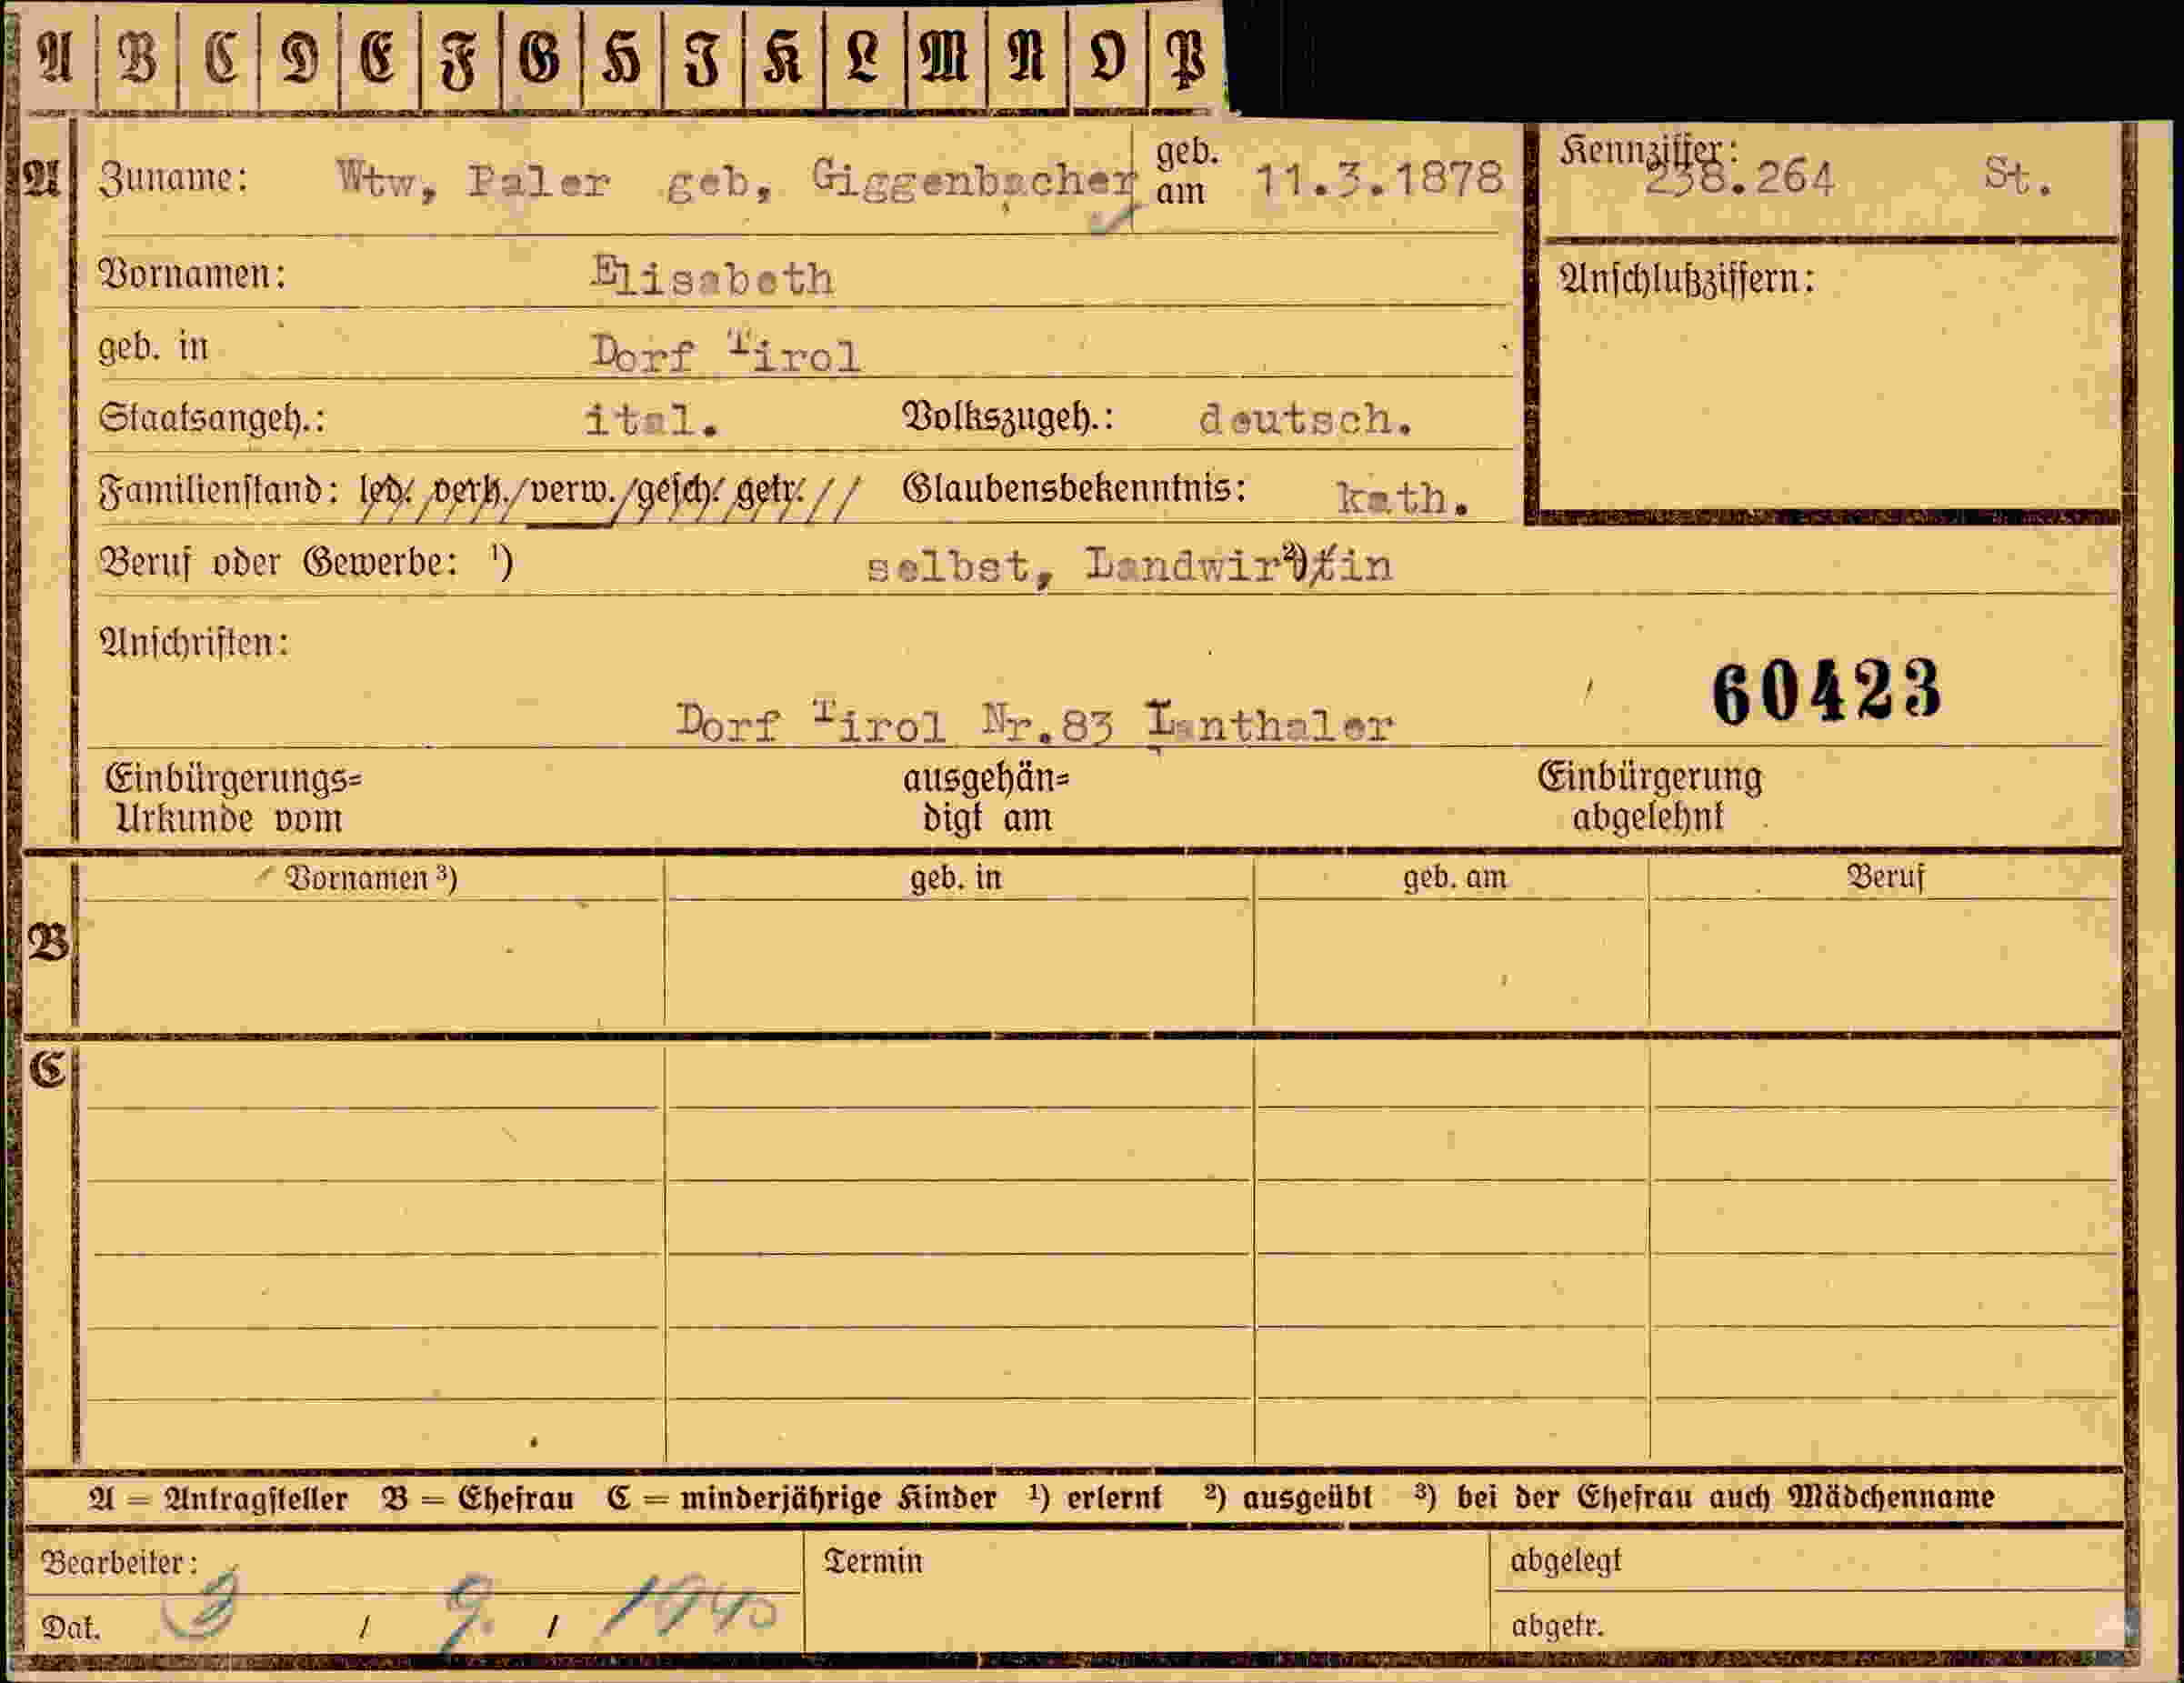 A B C D E F G H I K L M N O P
A Zuname: Wtw, Paler geb, Giggenbacher geb. am 11.3.1878 Kennziffer: 238.264 St.
Vornamen: Elisabeth Anschlußziffern:
geb. in Dorf Tirol
Staatsangeh.: ital. Volkszugeh.: deutsch.
Familienstand: led. / verh. / verw. / gesch. / getr. / / Glaubensbekenntnis: kath.
Beruf oder Gewerbe: ¹) selbst, Landwirtin ²)
Anschriften:
60423
Dorf Tirol Nr.83 Lanthaler
Einbürgerungs= ausgehän= Einbürgerung
Urkunde vom digt am abgelehnt
Vornamen ³) geb. in geb. am Beruf
B
C
A = Antragsteller B = Ehefrau C = minderjährige Kinder ¹) erlernt ²) ausgeübt ³) bei der Ehefrau auch Mädchenname
Bearbeiter: Termin abgelegt
Dat. 3 / 9. / 1940 abgetr.